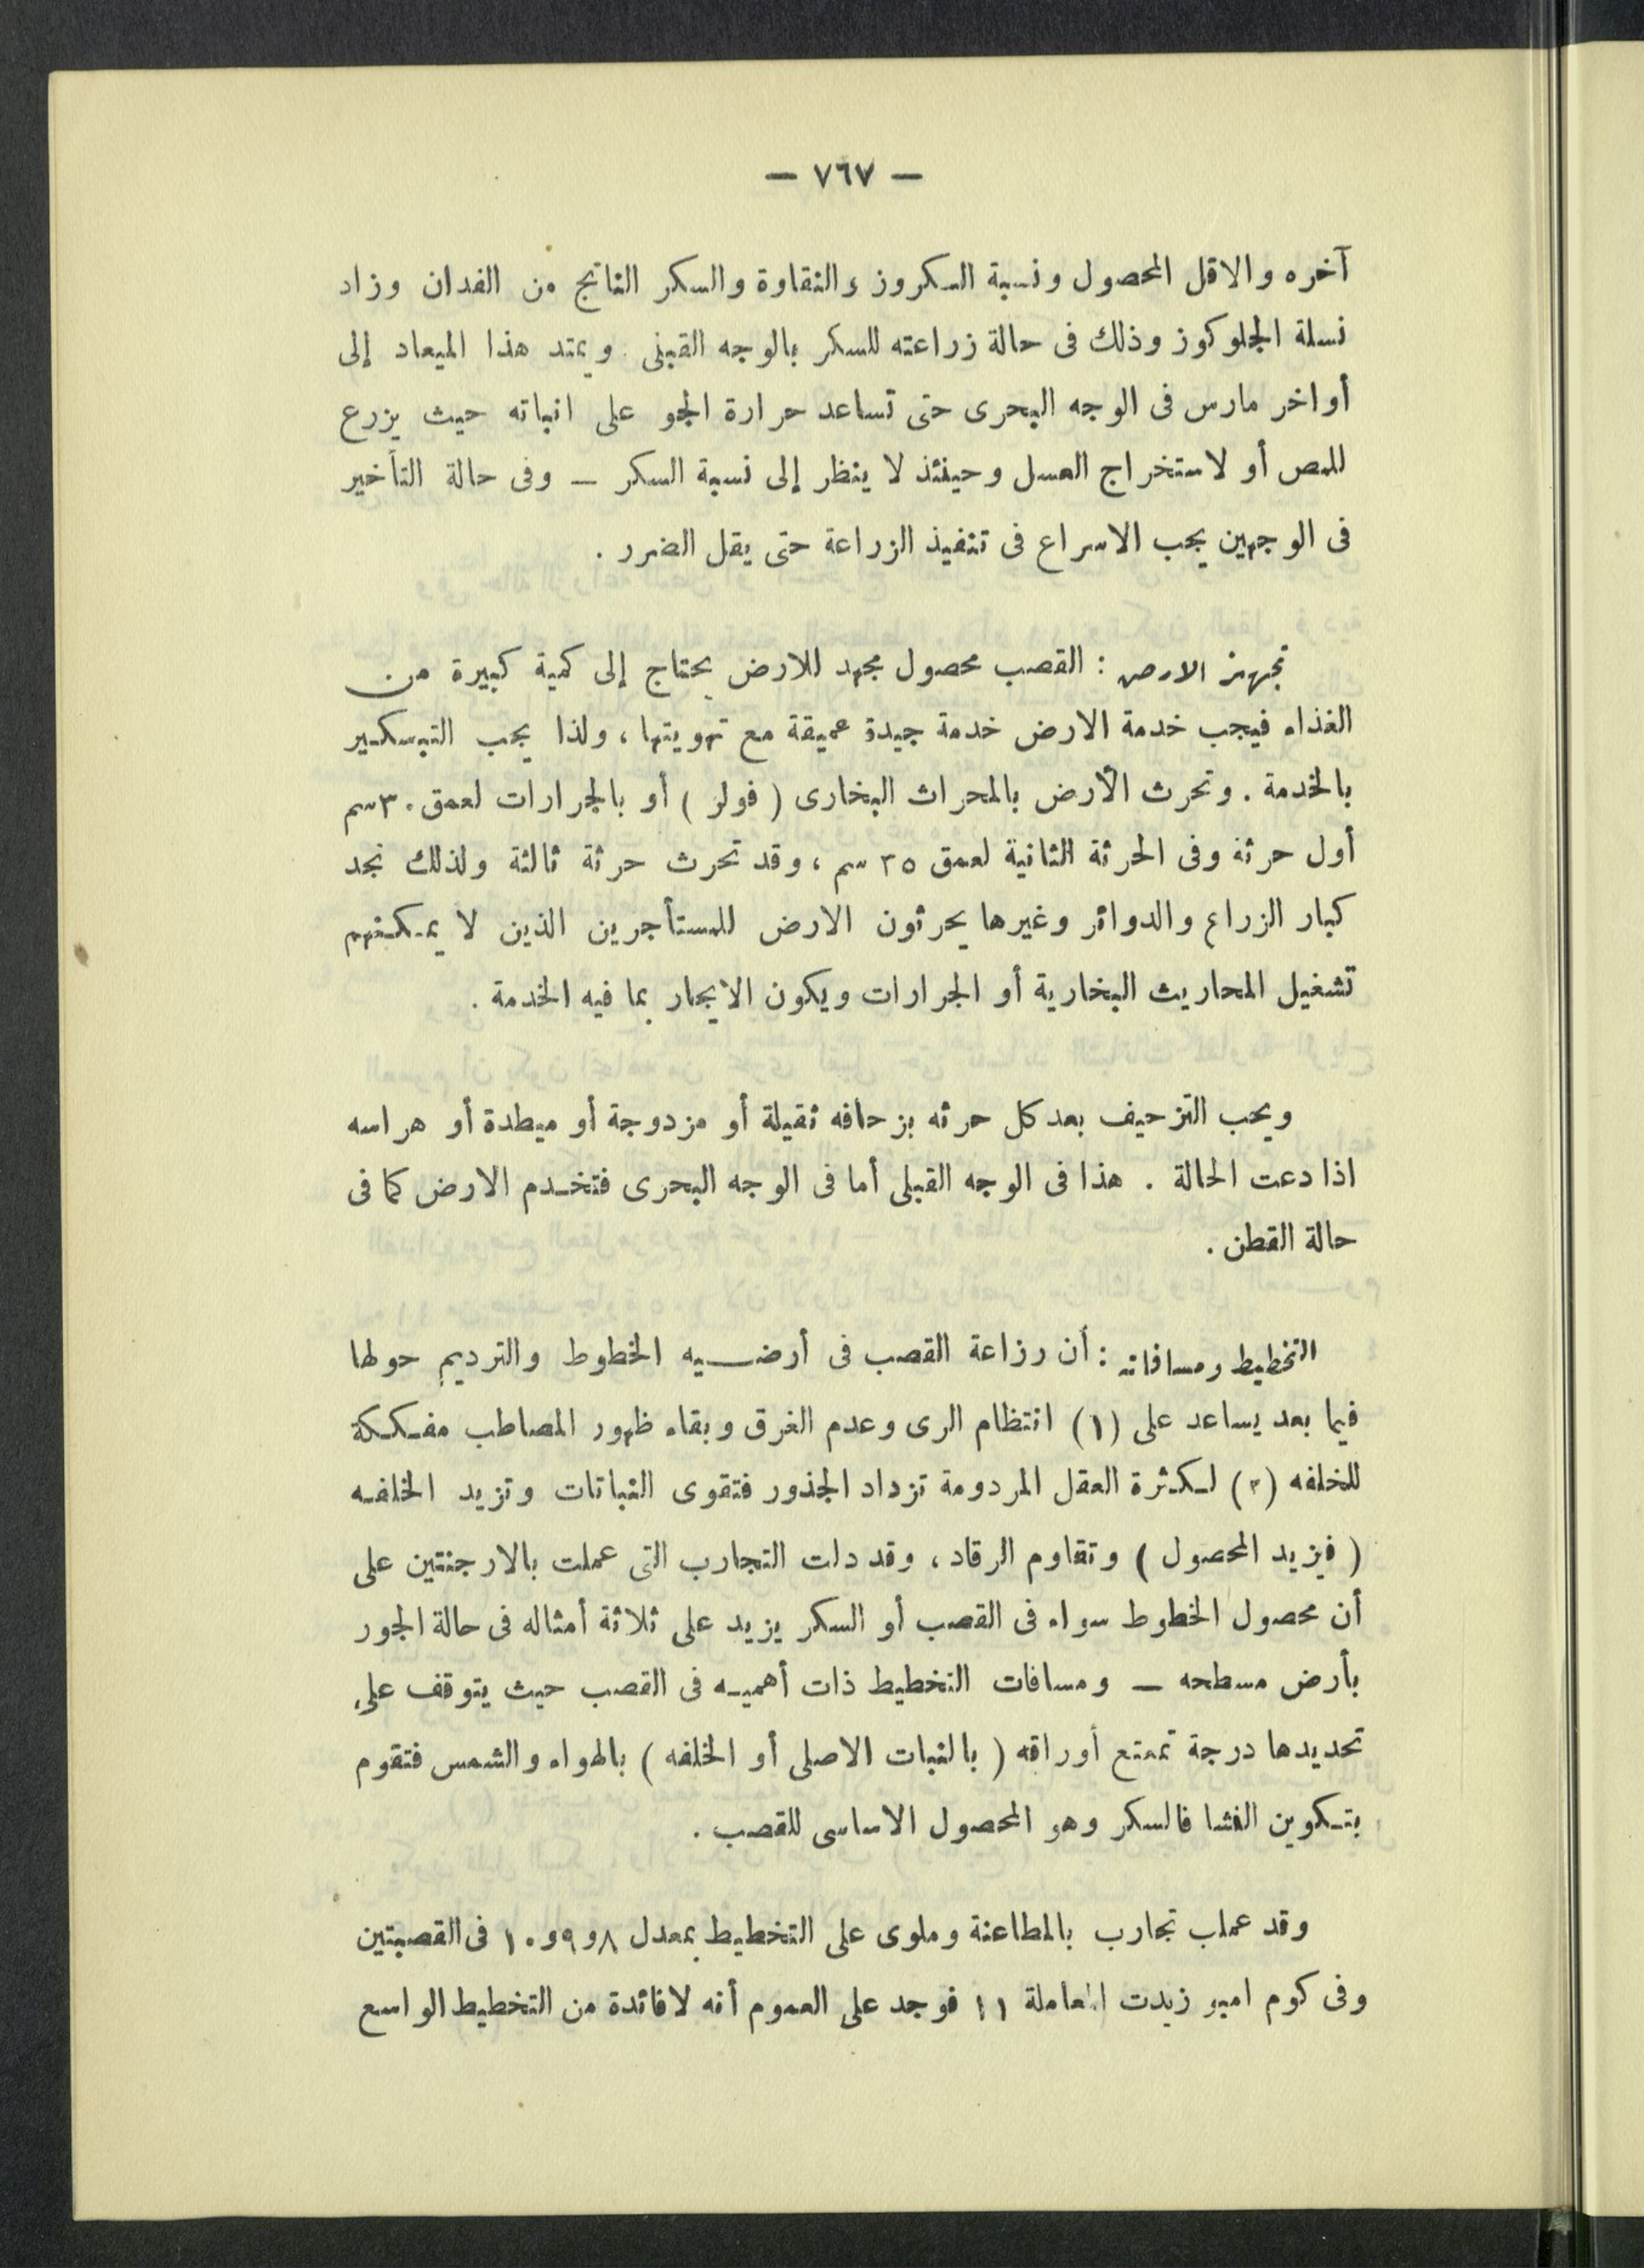 — ٧٦٧ —
آخره والاقل المحصول ونسبة السكروز والنقاوة والسكر الناتج من الفدان وزاد
نسلة الجلوكوز وذلك فى حالة زراعته للسكر بالوجه القبلى ويمتد هذا الميعاد إلى
أواخر مارس فى الوجه البحرى حتى تساعد حرارة الجو على انباته حيث يزرع
للمص أو لاستخراج العسل وحينئذ لا ينظر إلى نسبة السكر — وفى حالة التأخير
فى الوجهين يجب الاسراع فى تنفيذ الزراعة حتى يقل الضرر .
تجهيز الارض : القصب محصول مجهد للارض يحتاج إلى كمية كبيرة من
الغذاء فيجب خدمة الارض خدمة جيدة عميقة مع تهويتها ، ولذا يجب التبسكير
بالخدمة . وتحرث الأرض بالمحراث البخارى ( فولر ) أو بالجرارات لعمق ٣٠سم
أول حرثة وفى الحرثة الثانية لعمق ٣٥ سم ، وقد تحرث حرثة ثالثة ولذلك نجد
كبار الزراع والدوائر وغيرها يحرثون الارض للمستأجرين الذين لا يمكنهم
تشغيل المحاريث البخارية أو الجرارات ويكون الايجار بما فيه الخدمة .
ويجب التزحيف بعد كل حرثه بزحافه ثقيلة أو مزدوجة أو ميطدة أو هراسه
اذا دعت الحالة . هذا فى الوجه القبلى أما فى الوجه البحرى فتخدم الارض كما فى
حالة القطن .
التخطيط ومسافاته : أن رزاعة القصب فى أرضيه الخطوط والترديم حولها
فيما بعد يساعد على (١) انتظام الرى وعدم الغرق وبقاء ظهور المصاطب مفككة
للخلفه (٢) لكثرة العقل المردومة تزداد الجذور فتقوى النباتات وتزيد الخلفه
( فيزيد المحصول ) وتقاوم الرقاد ، وقد دلت التجارب التى عملت بالارجنتين على
أن محصول الخطوط سواء فى القصب أو السكر يزيد على ثلاثة أمثاله فى حالة الجور
بأرض مسطحه — ومسافات التخطيط ذات أهميه فى القصب حيث يتوقف على
تحديدها درجة تمتع أوراقه ( بالنبات الاصلى أو الخلفه ) بالهواء والشمس فتقوم
بتكوين النشا فالسكر وهو المحصول الاساسى للقصب .
وقد عملب تجارب بالمطاعنة وملوى على التخطيط بمعدل ٨و٩و١٠ فى القصبتين
وفى كوم امبو زيدت المعاملة ١١ فوجد على العموم أنه لا فائدة من التخطيط الواسع